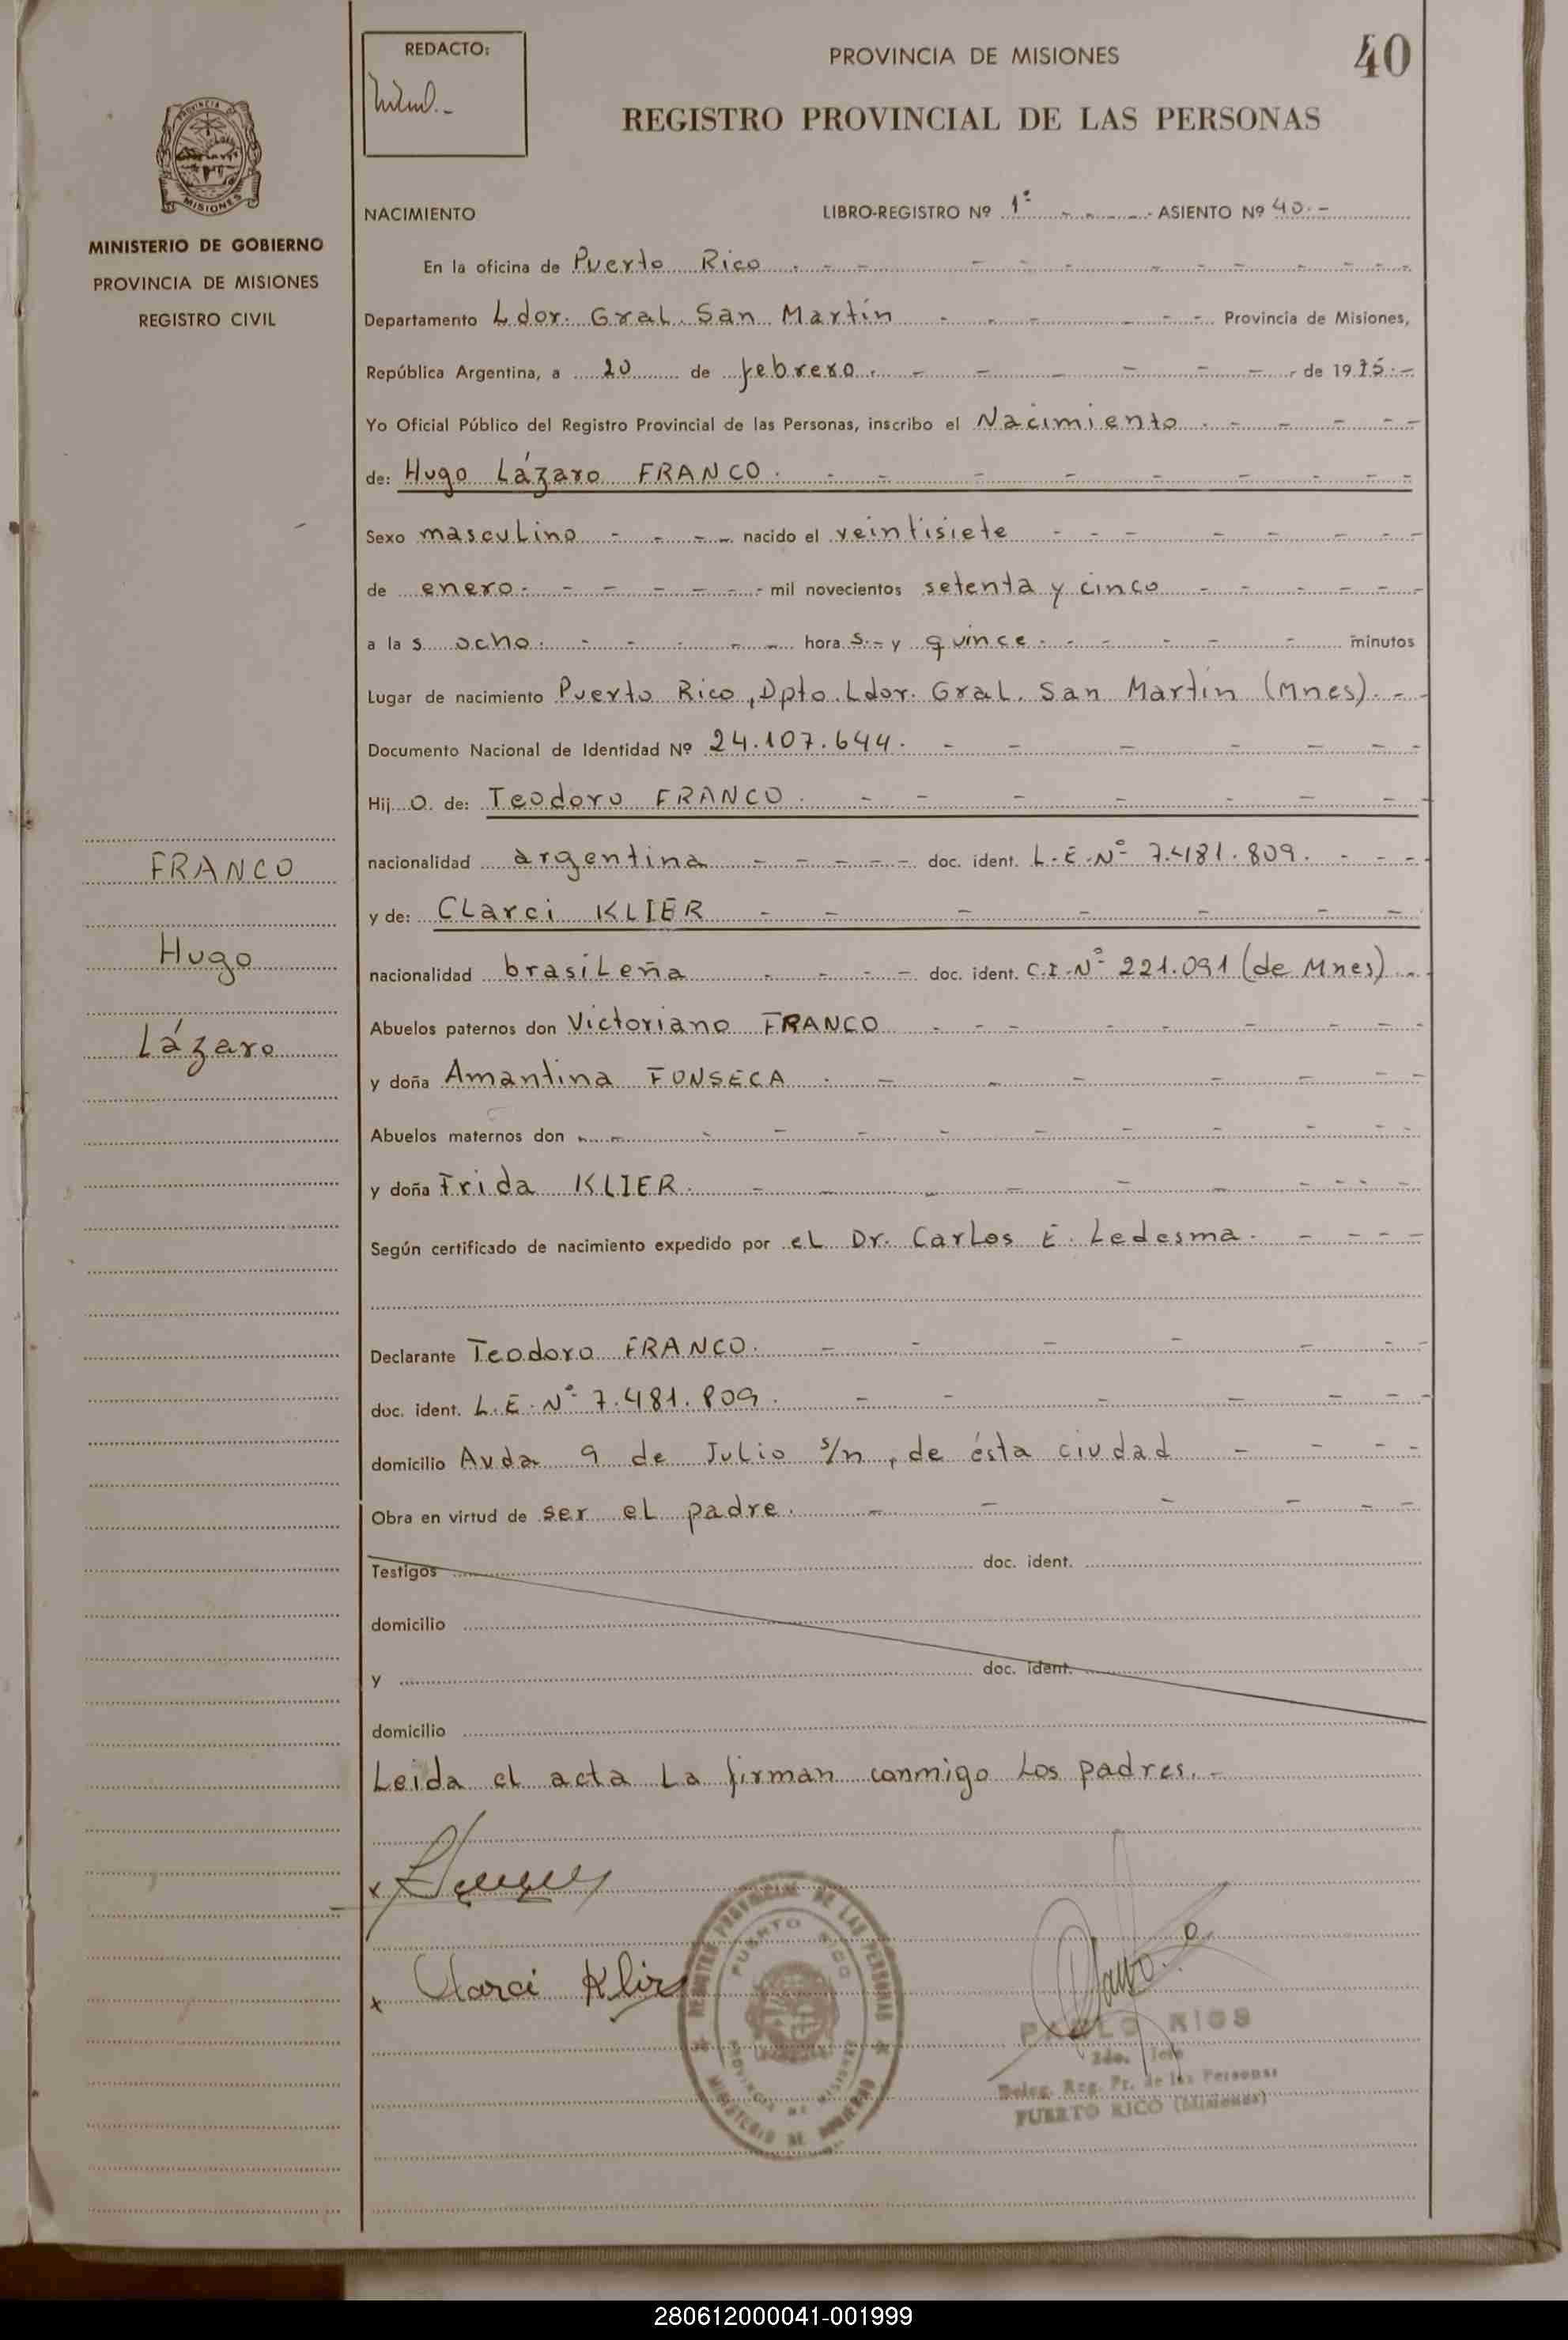 REDACTO:
PROVINCIA DE MISIONES
40
REGISTRO PROVINCIAL DE LAS PERSONAS
PROVINCIA DE
MISIONES
MINISTERIO DE GOBIERNO
PROVINCIA DE MISIONES
REGISTRO CIVIL
NACIMIENTO LIBRO-REGISTRO Nº 1º ASIENTO Nº 40.-
En la oficina de Puerto Rico.
Departamento Ldor. Gral. San Martín Provincia de Misiones,
República Argentina, a 20 de febrero. de 1975.-
Yo Oficial Público del Registro Provincial de las Personas, inscribo el Nacimiento.
de: Hugo Lázaro FRANCO.
Sexo masculino nacido el veintisiete
de enero. mil novecientos setenta y cinco
a las ocho. horas.- y quince minutos
Lugar de nacimiento Puerto Rico, Dpto. Ldor. Gral. San Martín (Mnes).-
Documento Nacional de Identidad Nº 24.107.644.
Hijo de: Teodoro FRANCO.
nacionalidad argentina doc. ident. L.E.Nº 7.481.809.
y de: Clarci KLIER
nacionalidad brasileña doc. ident. C.I.Nº 221.091 (de Mnes)
Abuelos paternos don Victoriano FRANCO
y doña Amantina FONSECA.
Abuelos maternos don
y doña Frida KLIER.
Según certificado de nacimiento expedido por el Dr. Carlos E. Ledesma.
Declarante Teodoro FRANCO.
doc. ident. L.E.Nº 7.481.809.
domicilio Avda 9 de Julio s/n, de ésta ciudad
Obra en virtud de ser el padre.
Testigos doc. ident.
domicilio
y doc. ident.
domicilio
Leida el acta la firman conmigo los padres.-
FRANCO
Hugo
Lázaro
x
x Clarci Klier
REGISTRO PROVINCIAL DE LAS PERSONAS
PUERTO RICO
PROVINCIA DE MISIONES
MINISTERIO DE GOBIERNO
PABLO RIOS
2do. Jefe
Deleg. Reg. Pr. de las Personas
PUERTO RICO (Misiones)
280612000041-001999